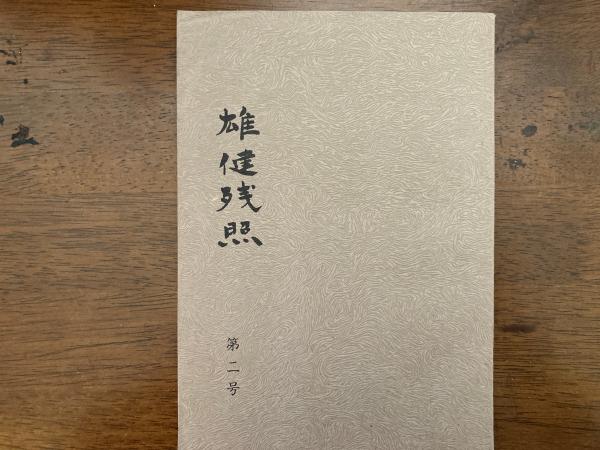 雄健残照
第二号